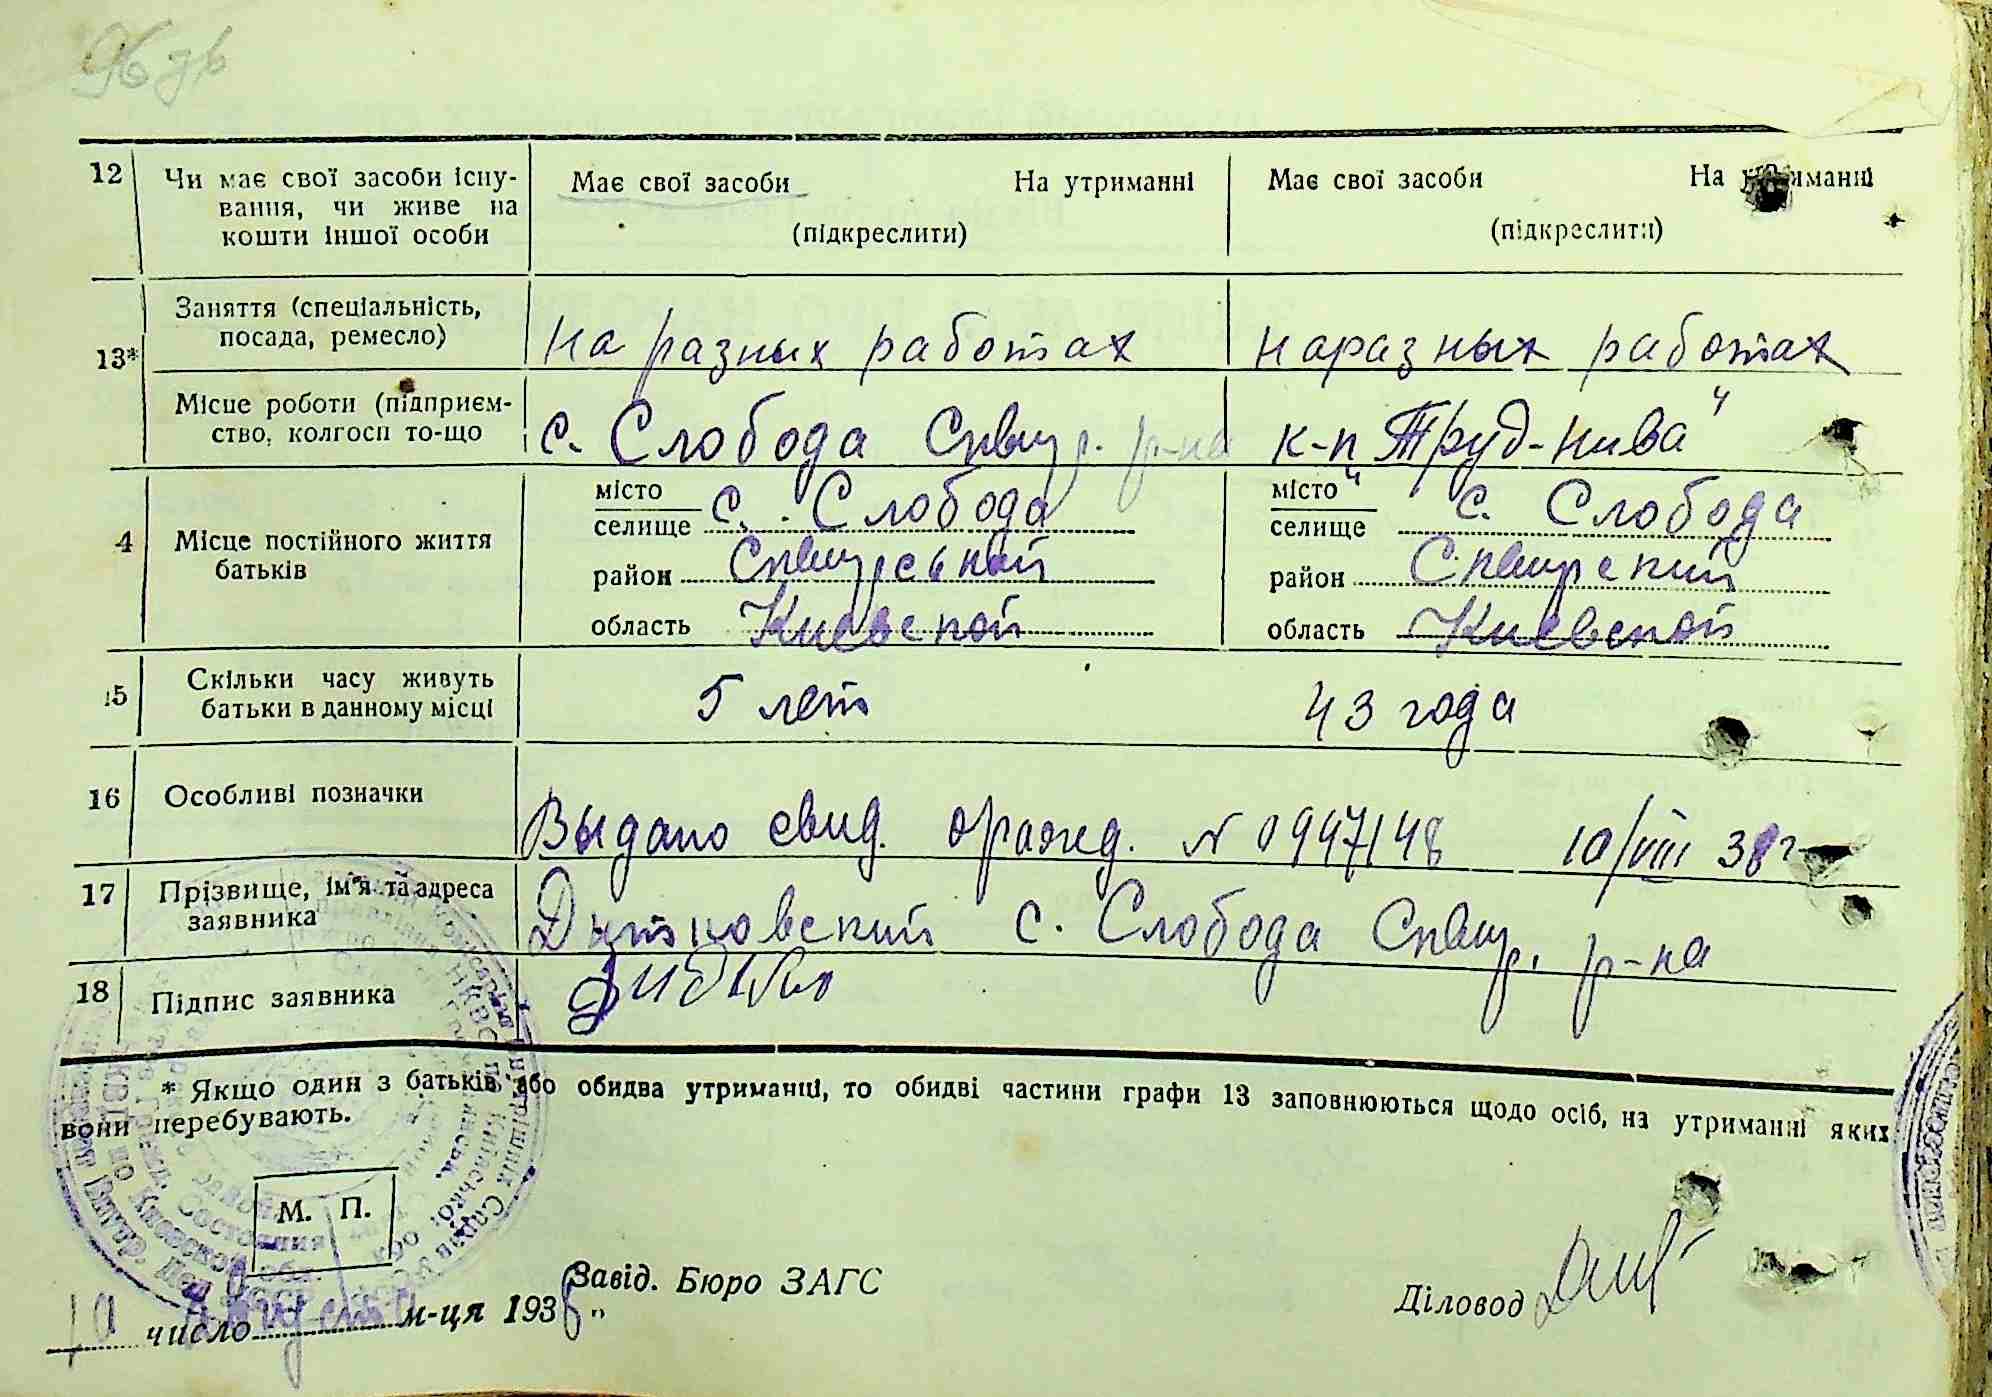 12 Чи має свої засоби існу-
вання, чи живе на
кошти іншої особи
Має свої засоби На утриманні
(підкреслити)
Має свої засоби На утриманні
(підкреслити)
13* Заняття (спеціальність,
посада, ремесло)
на разных работах
на разных работах
Місце роботи (підприєм-
ство, колгосп то-що
с. Слобода Сквир. р-на
к-п „Труд-Нива“
4 Місце постійного життя
батьків
місто
селище с. Слобода
район Сквирский
область Киевской
місто
селище с. Слобода
район Сквирский
область Киевской
15 Скільки часу живуть
батьки в данному місці
5 лет
43 года
16 Особливі позначки
Выдано свид. о ражд. № 0947148 10/VIII 38 г
17 Прізвище, ім'я та адреса
заявника
с. Слобода Сквир. р-на
18 Підпис заявника
* Якщо один з батьків, або обидва утриманці, то обидві частини графи 13 заповнюються щодо осіб, на утриманні яких
вони перебувають.
М. П.
10 число Августа м-ця 1938 „
Завід. Бюро ЗАГС
Діловод